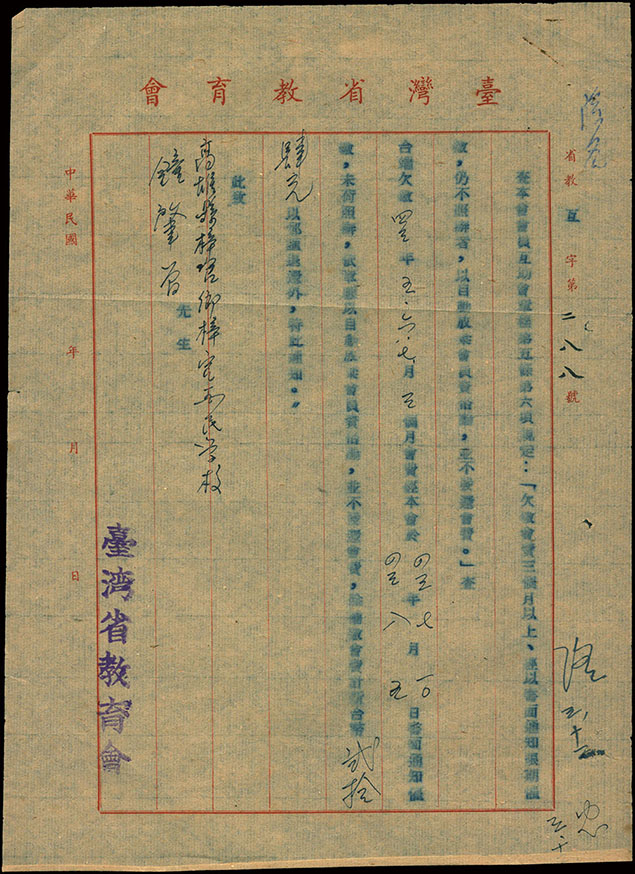 臺灣省教育會
省教互字第二八八號
查本會會員互助會章程第五條第六項規定:「欠繳會費三個月以上、經以書面通知限期催
繳,仍不照辦者,以自動放棄會員資格論,並不發還會費。」查
台端欠繳四三年五.六.七月三個月會費經本會於四三年七月一〇四三八五日書面通知催
繳,未荷照辦,依章應以自動放棄會員資格論,並不發還會費,除補繳會費計新台幣貳拾
肆元以郵匯退還外,特此通知。
此致
高雄縣梓官鄉梓官國民学校
鍾肇先生
中華民國年月日
臺湾省教育會